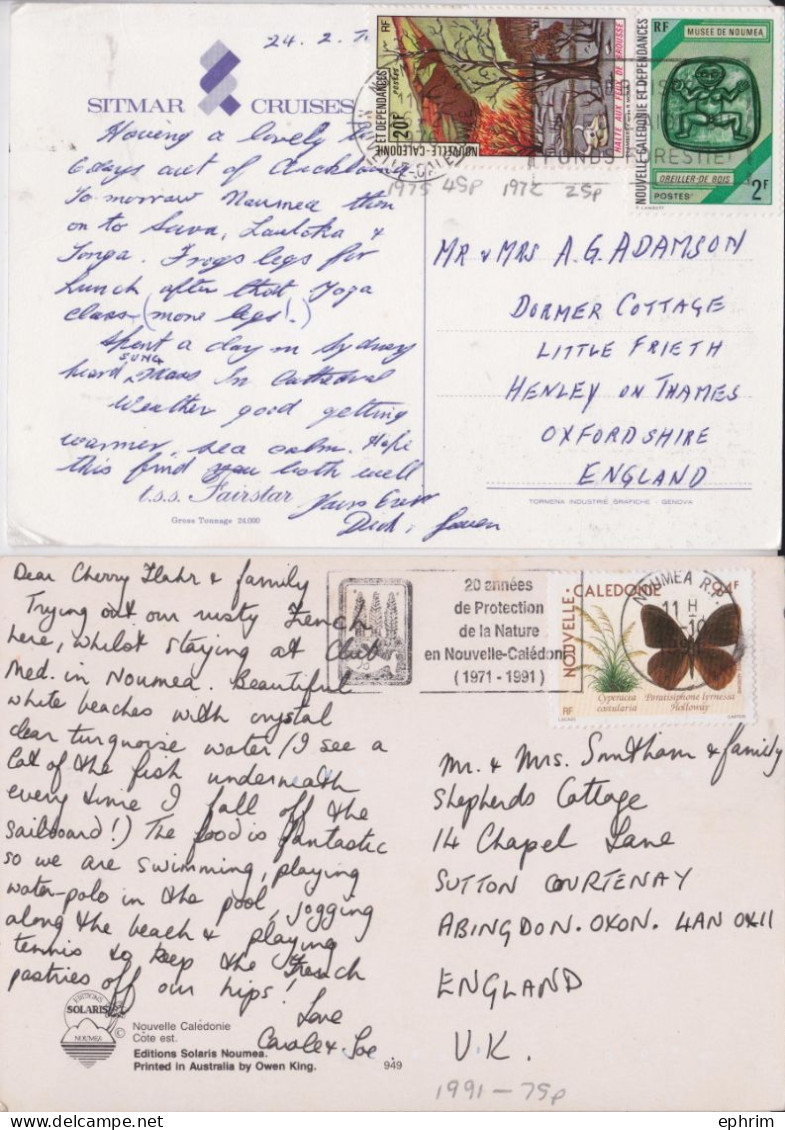 24. 2.
SITMAR CRUISES
Having a lovely
6 days out of Auckland
To morrow Noumea then
on to Suva, Lautoka &
Tonga. Frogs legs for
Lunch after that Yoga
class (more legs!.)
Spent a day in Sydney
SUNG
heard Mass In Cathedral
Weather good getting
warmer, sea calm. Hope
this find you both well
t.s.s. Fairstar
Yours Ever
Gross Tonnage 24.000
Dick,
RF
NOUVELLE-CALÉDONIE
ET DEPENDANCES
20F
POSTES
HALTE AUX FEUX DE BROUSSE
RF
MUSEE DE NOUMEA
NOUVELLE CALEDONIE ET DEPENDANCES
OREILLER-DE BOIS
POSTES
2F
FONDS FORESTIE
1975 45p 1972 25p
MR & MRS A.G. ADAMSON
DORMER COTTAGE
LITTLE FRIETH
HENLEY ON THAMES
OXFORDSHIRE
ENGLAND
TORMENA INDUSTRIE GRAFICHE - GENOVA
Dear Cherry & family
Trying out our rusty French
here, whilst staying at Club
Med. in Noumea. Beautiful
white beaches with crystal
clear turquoise water (I see a
lot of the fish underneath
every time I fall off the
sailboard!) The food is fantastic
so we are swimming, playing
water-polo in the pool, jogging
along the beach & playing
tennis to keep the French
pastries off our hips!
Love
Carole & Joe
EDITIONS
SOLARIS
NOUMEA
© Nouvelle Calédonie
Côte est.
Editions Solaris Noumea.
Printed in Australia by Owen King.
949
20 années
de Protection
de la Nature
en Nouvelle-Calédonie
(1971 - 1991)
NOUVELLE-CALEDONIE
94F
NOUMEA R.P.
11 H
Cyperacea
costularia
Paratisiphone lyrnessa
Holloway
RF
Mr. & Mrs. Smitham & family
Shepherds Cottage
14 Chapel Lane
SUTTON COURTENAY
ABINGDON. OXON. 4AN OX11
ENGLAND
U.K.
1991 - 75p